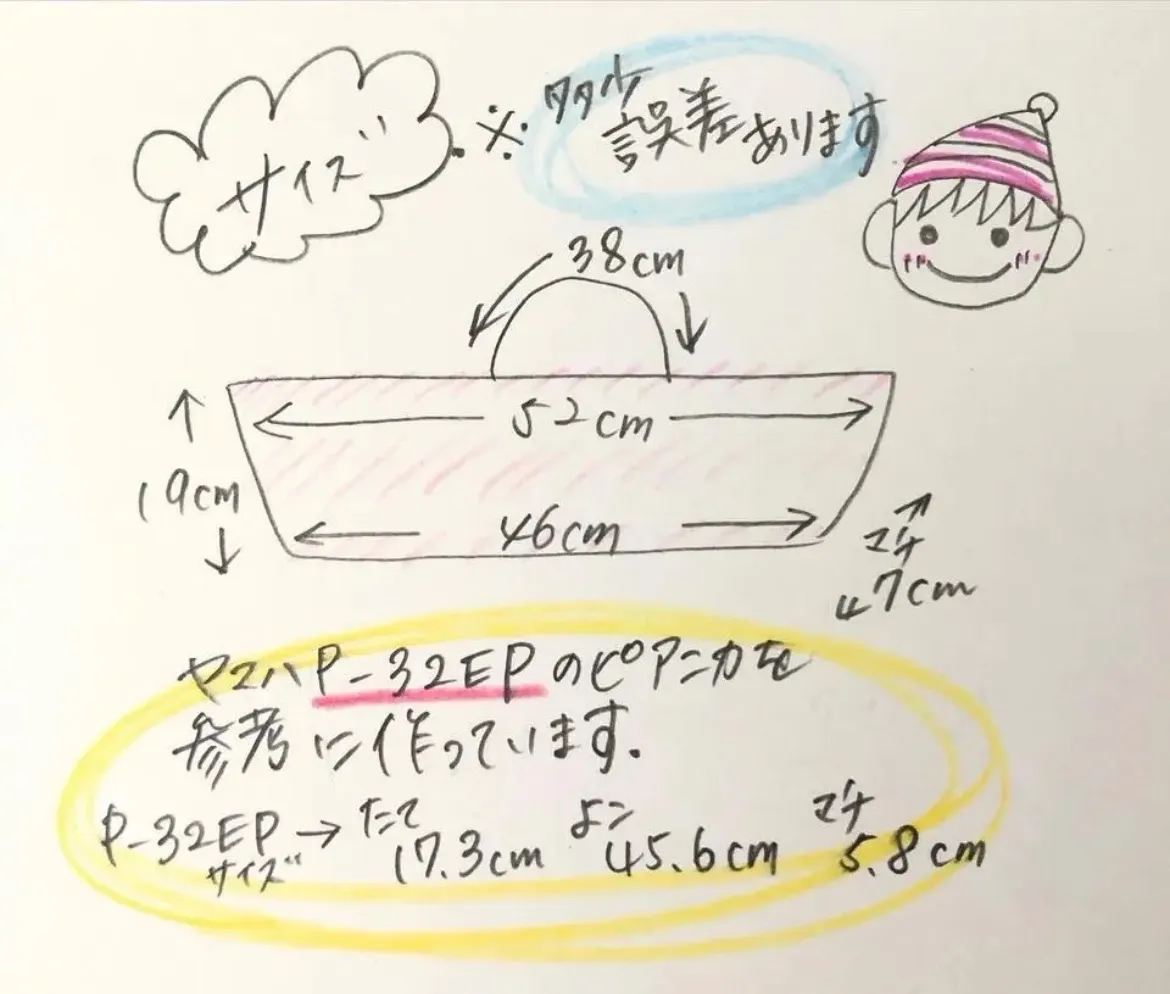 サイズ
※多少
誤差あります
38cm
52cm
19cm
46cm
マチ
7cm
ヤマハP-32EPのピアニカを
参考に作っています.
P-32EPサイズ→たて17.3cm よこ45.6cm マチ5.8cm